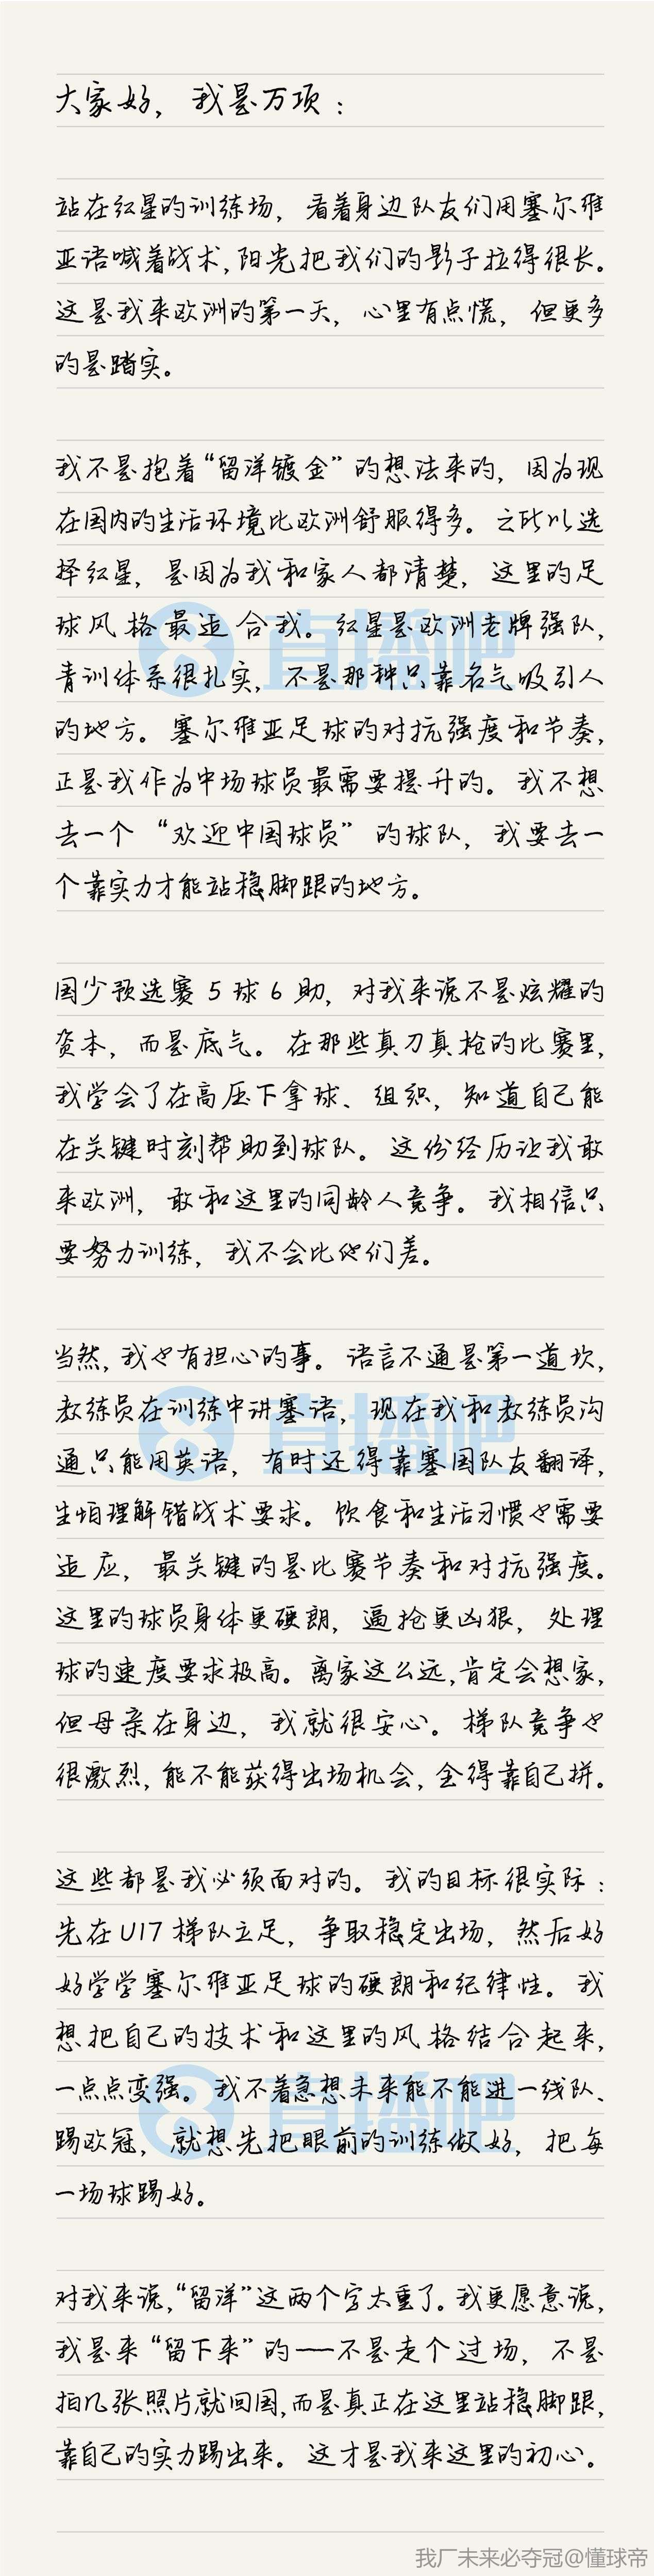 大家好，我是万项：
站在红星的训练场，看着身边队友们用塞尔维
亚语喊着战术,阳光把我们的影子拉得很长。
这是我来欧洲的第一天，心里有点慌，但更多
的是踏实。
我不是抱着“留洋镀金”的想法来的，因为现
在国内的生活环境比欧洲舒服得多。之所以选
择红星，是因为我和家人都清楚，这里的足
球风格最适合我。红星是欧洲老牌强队，
青训体系很扎实，不是那种只靠名气吸引人
的地方。塞尔维亚足球的对抗强度和节奏，
正是我作为中场球员最需要提升的。我不想
去一个“欢迎中国球员”的球队，我要去一
个靠实力才能站稳脚跟的地方。
国少预选赛5球6助，对我来说不是炫耀的
资本，而是底气。在那些真刀真枪的比赛里，
我学会了在高压下拿球、组织，知道自己能
在关键时刻帮助到球队。这份经历让我敢
来欧洲，敢和这里的同龄人竞争。我相信只
要努力训练，我不会比他们差。
当然，我也有担心的事。语言不通是第一道坎，
教练员在训练中讲塞语，现在我和教练员沟
通只能用英语，有时还得靠塞国队友翻译，
生怕理解错战术要求。饮食和生活习惯也需要
适应，最关键的是比赛节奏和对抗强度。
这里的球员身体更硬朗，逼抢更凶狠，处理
球的速度要求极高。离家这么远,肯定会想家，
但母亲在身边，我就很安心。梯队竞争也
很激烈,能不能获得出场机会,全得靠自己拼。
这些都是我必须面对的。我的目标很实际：
先在U17梯队立足，争取稳定出场，然后好
好学学塞尔维亚足球的硬朗和纪律性。我
想把自己的技术和这里的风格结合起来，
一点点变强。我不着急想未来能不能进一线队、
踢欧冠，就想先把眼前的训练做好，把每
一场球踢好。
对我来说,“留洋”这两个字太重了。我更愿意说，
我是来“留下来”的——不是走个过场，不是
拍几张照片就回国,而是真正在这里站稳脚跟，
靠自己的实力踢出来。这才是我来这里的初心。
直播吧
直播吧
直播吧
我厂未来必夺冠@懂球帝